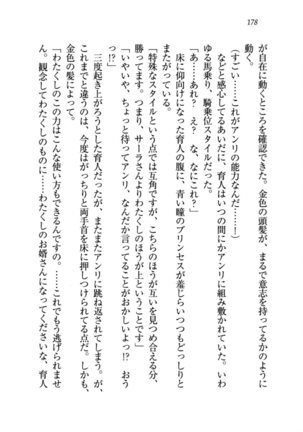 178
が自在に動くところを確認できた。金色の頭髪が、まるで意志を持ってるかのように
動く。
(すごい……これがアンリの能力なんだ……!)
などと感心してるあいだに、育人はいつの間にかアンリに組み敷かれていた。いわ
ゆる馬乗り、騎乗位スタイルだった。
「あ……あれ? え? な、なにこれ?」
床に仰向けになった育人の腹に、青い瞳のプリンセスが羞じらいつつもどっしりと
またがっている。
「特殊なスタイルという点では互角ですが、こちらのほうが互いを見つめ合える分、
勝ってます。つまり、サーラさんよりわたくしのほうが上ということです」
「いやいや、ちょっと待ってアンリ、なんだか言ってることがおかしいよっ!? おう
っ!?」
三度起き上がろうとした育人だったが、またまたアンリに跳ね返されてしまう。が、
これまでと違うのは、今度はがっちりと両手首を床に押しつけられてる点だ。しかも、
金色の髪によって。
「わたくしのこの力はこんな使い方もできるんですの。……これでもう逃げられませ
ん。観念してわたくしのものに……わたくしのお婿さんになってくださいな、育人